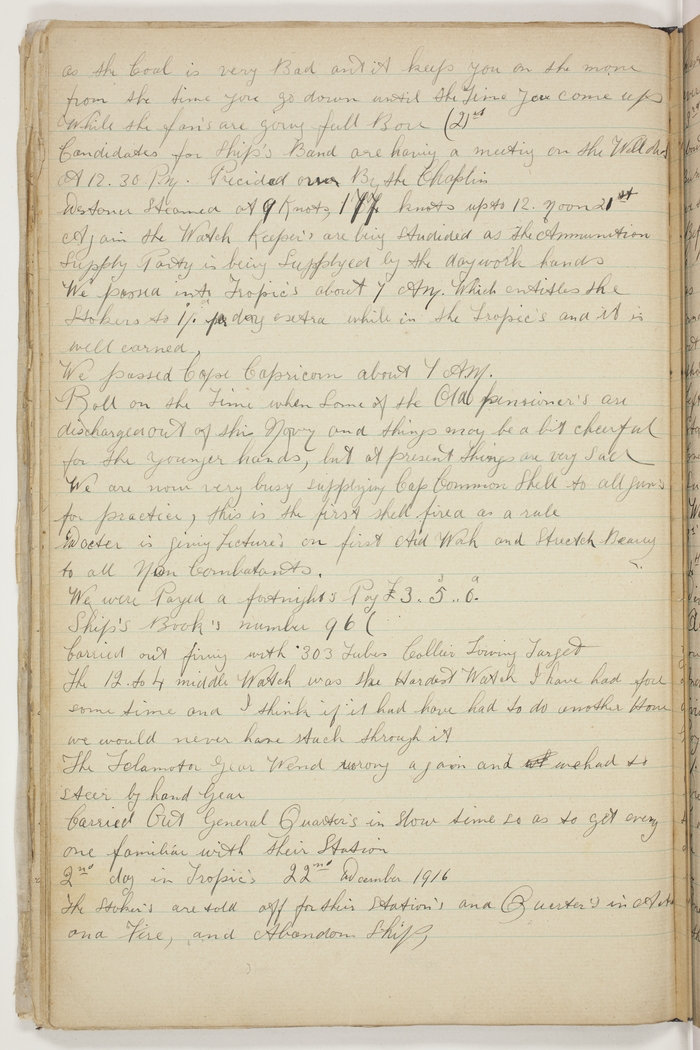 as the Coal is very Bad and it keeps you on the move
from the time you go down until the time you come up
While the fan's are going full Bore (21st
Candidates for Ship's Band are having a meeting on the Well deck
At 12.30 P.M. Precided over By the Chaplin
Steamed at 9 Knots, 177 knots up to 12. Noon 21st
Again the Watch Keeper's are being studided as the Ammunition
Supply Party is being Supplyed by the daywork hands
We passed into Tropic's about 7 AM. Which entitles the
Stokers to 1/. per day extra while in the Tropic's and it is
well earned,
We passed Cape Capricorn about 7 AM.
Roll on the Time when Some of the Old pensioner's are
discharged out of this Navy and things may be a bit cheerful
for the younger hands, but at present things are very Sad
We are now very busy supplying Cap Common Shell to all gun's
for practice, this is the first shell fired as a rule
Docter is giving Lecture's on first Aid Wok and Stretch Bearing
to all Non Combatants.
We were Payed a fortnight's Pay £3. 5s.. 0d.
Ship's Book's number 96
Carried out firing with .303 Tubes Collier Towing Target
The 12. to 4 middle Watch was the Hardest Watch I have had for
some time and I think if it had have had to do another Hour
we would never have stuck through it
The Telamotor Gear Wend wrong again and we had to
steer by hand Gear
Carried Out General Quarter's in Slow time so as to get every
one familiar with their Station
2nd day in Tropic's 22nd December 1916
The Stoker's are told off for their Station's and Quarter's in
on a Fire, and Abandon Ship,